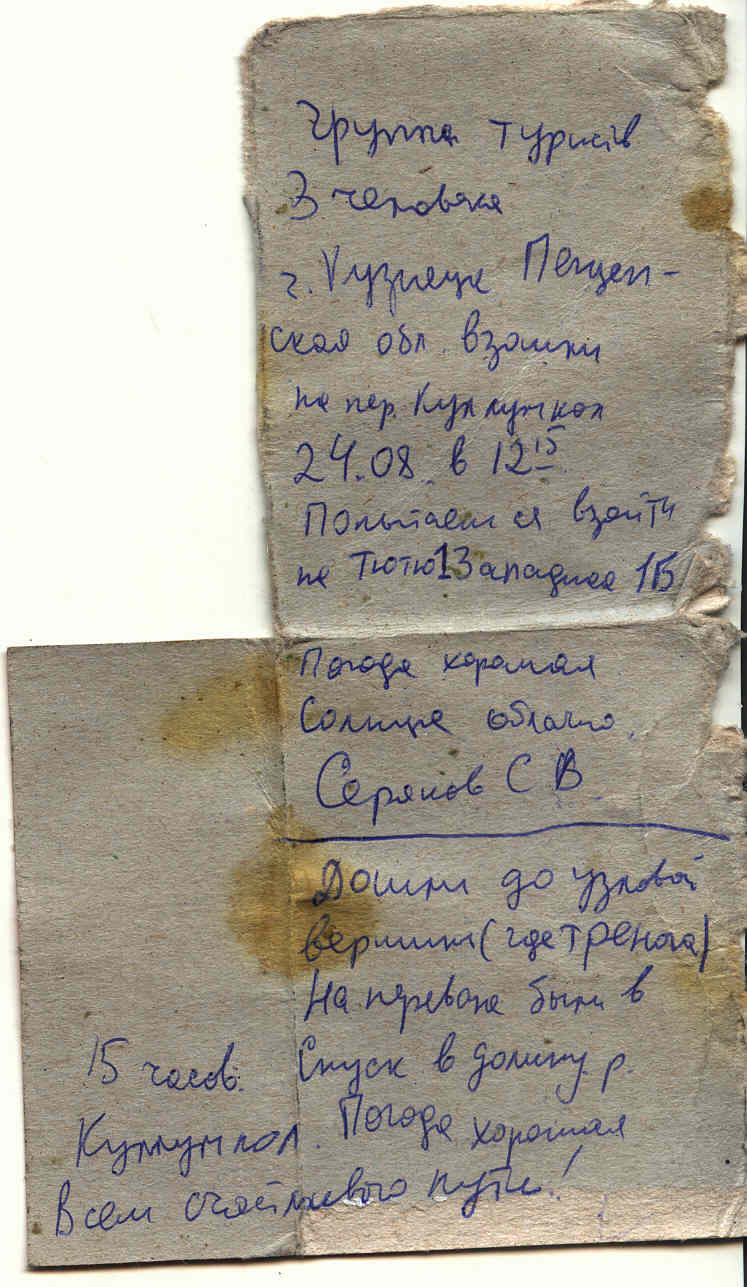 Группа турисів
3 человека
г. Кузнецк Пензен-
ская обл. взошли
на пер. Куллумкол
24.08. в 12 15
Попытаемся взойти
на Тютю1Западная 1Б
Погода хорошая
Солнце облачно.
Серяков С В
Дошли до узловой
вершины (где тренога)
На перевале были в
15 часов. Спуск в долину р.
Куллумкол. Погода хорошая
Всем счастливого пути!